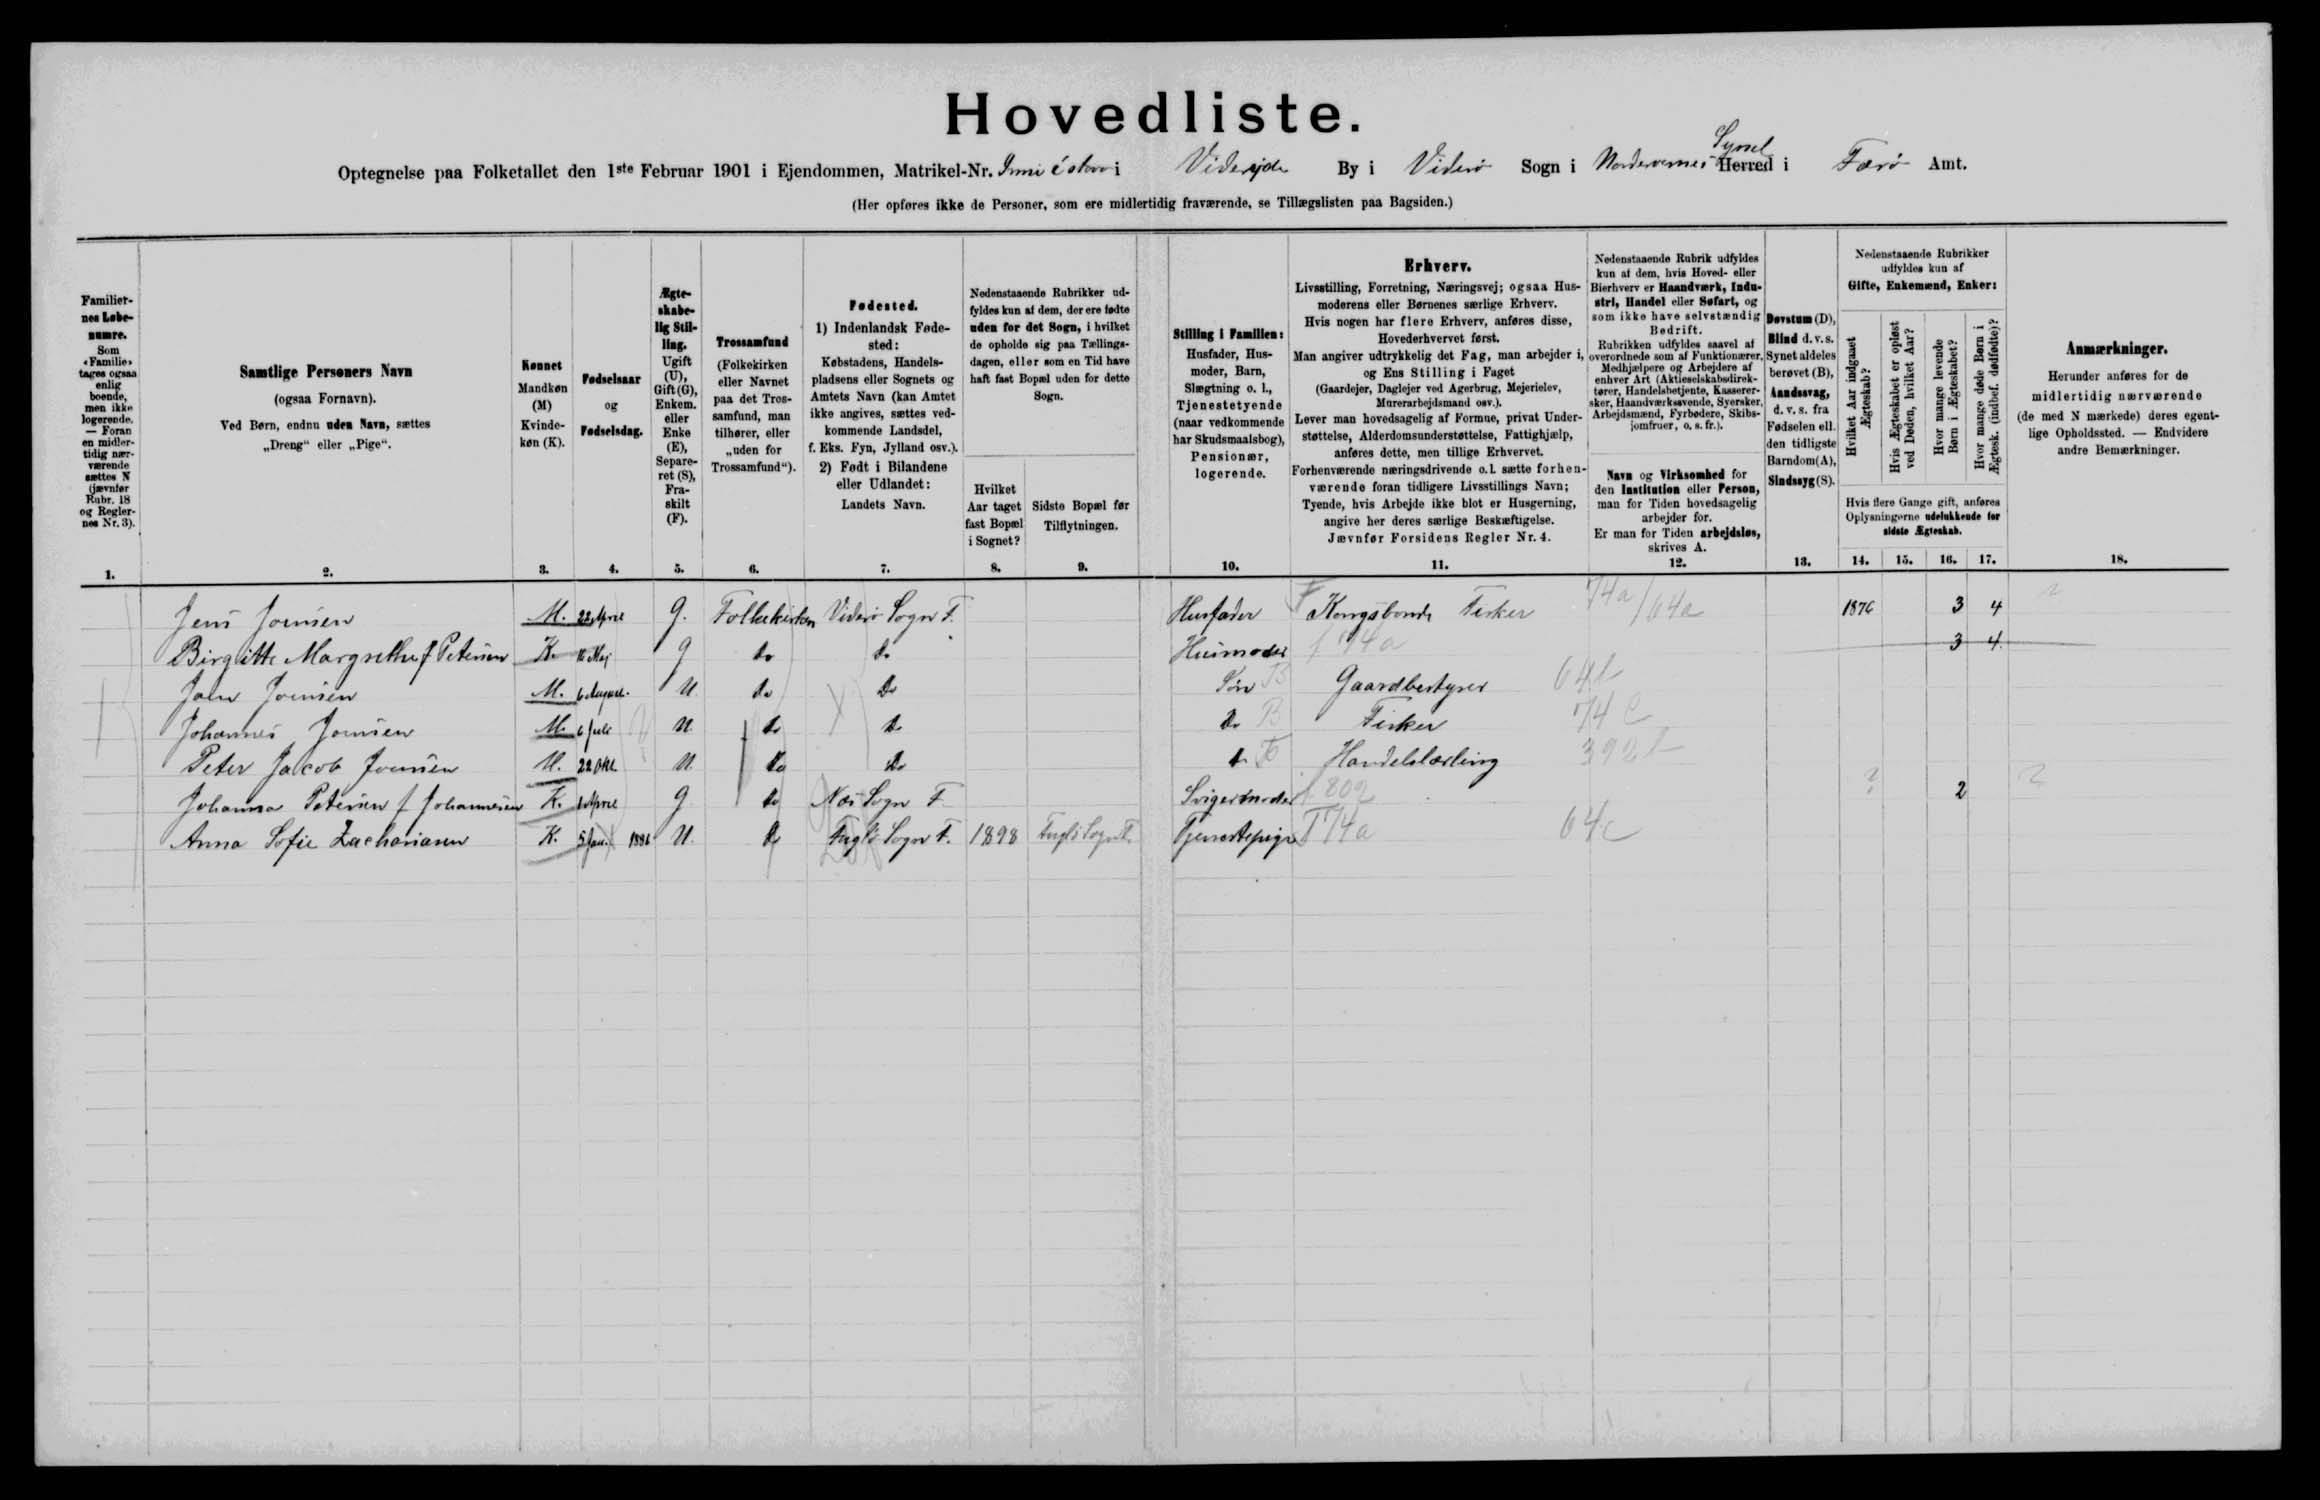 Hovedliste.
Optegnelse paa Folketallet den 1ste Februar 1901 i Ejendommen, Matrikel-Nr. Inni i stovo i Viderejde By i Viderø Sogn i Norderøernes Syssel Herred i Færø Amt.
(Her opføres ikke de Personer, som ere midlertidig fraværende, se Tillægslisten paa Bagsiden.)
Familiernes Løbenumre.
Som «Familie» tages ogsaa enlig boende, men ikke logerende. — Foran en midlertidig nærværende sættes N (jævnfør Rubr. 18 og Reglernes Nr. 3).
Samtlige Personers Navn
(ogsaa Fornavn).
Ved Børn, endnu uden Navn, sættes
„Dreng“ eller „Pige“.
Kønnet
Mandkøn
(M)
Kvinde-
køn (K).
Fødselsaar
og
Fødselsdag.
Ægte-
skabe-
lig Stil-
ling.
Ugift
(U),
Gift (G),
Enkem.
eller
Enke
(E),
Separe-
ret (S),
Fra-
skilt
(F).
Trossamfund
(Folkekirken
eller Navnet
paa det Tros-
samfund, man
tilhører, eller
„uden for
Trossamfund“).
Fødested.
1) Indenlandsk Føde-
sted:
Købstadens, Handels-
pladsens eller Sognets og
Amtets Navn (kan Amtet
ikke angives, sættes ved-
kommende Landsdel,
f. Eks. Fyn, Jylland osv.).
2) Født i Bilandene
eller Udlandet:
Landets Navn.
Nedenstaaende Rubrikker ud-
fyldes kun af dem, der ere fødte
uden for det Sogn, i hvilket
de opholde sig paa Tællings-
dagen, eller som en Tid have
haft fast Bopæl uden for dette
Sogn.
Hvilket
Aar taget
fast Bopæl
i Sognet?
Sidste Bopæl før
Tilflytningen.
Stilling i Familien:
Husfader, Hus-
moder, Barn,
Slægtning o. l.,
Tjenestetyende
(naar vedkommende
har Skudsmaalsbog),
Pensionær,
logerende.
Erhverv.
Livsstilling, Forretning, Næringsvej; ogsaa Hus-
moderens eller Børnenes særlige Erhverv.
Hvis nogen har flere Erhverv, anføres disse,
Hovederhvervet først.
Man angiver udtrykkelig det Fag, man arbejder i,
og Ens Stilling i Faget
(Gaardejer, Daglejer ved Agerbrug, Mejerielev,
Murerarbejdsmand osv.).
Lever man hovedsagelig af Formue, privat Under-
støttelse, Alderdomsunderstøttelse, Fattighjælp,
anføres dette, men tillige Erhvervet.
Forhenværende næringsdrivende o. l. sætte forhen-
værende foran tidligere Livsstillings Navn;
Tyende, hvis Arbejde ikke blot er Husgerning,
angive her deres særlige Beskæftigelse.
Jævnfør Forsidens Regler Nr. 4.
Nedenstaaende Rubrik udfyldes
kun af dem, hvis Hoved- eller
Bierhverv er Haandværk, Indu-
stri, Handel eller Søfart, og
som ikke have selvstændig
Bedrift.
Rubrikken udfyldes saavel af
overordnede som af Funktionærer,
Medhjælpere og Arbejdere af
enhver Art (Aktieselskabsdirek-
tører, Handelsbetjente, Kasserer-
sker, Haandværkssvende, Syersker,
Arbejdsmænd, Fyrbødere, Skibs-
jomfruer, o. s. fr.).
Navn og Virksomhed for
den Institution eller Person,
man for Tiden hovedsagelig
arbejder for.
Er man for Tiden arbejdsløs,
skrives A.
Døvstum (D),
Blind d. v. s.
Synet aldeles
berøvet (B),
Aandssvag,
d. v. s. fra
Fødselen ell.
den tidligste
Barndom (A),
Sindssyg (S).
Nedenstaaende Rubrikker
udfyldes kun af
Gifte, Enkemænd, Enker:
Hvilket Aar indgaaet Ægteskab?
Hvis Ægteskabet er opløst ved Døden, hvilket Aar?
Hvor mange levende Børn i Ægteskabet?
Hvor mange døde Børn i Ægtesk. (indbef. dødfødte)?
Hvis flere Gange gift, anføres
Oplysningerne udelukkende for
sidste Ægteskab.
Anmærkninger.
Herunder anføres for de
midlertidig nærværende
(de med N mærkede) deres egent-
lige Opholdssted. — Endvidere
andre Bemærkninger.
1. 2. 3. 4. 5. 6. 7. 8. 9. 10. 11. 12. 13. 14. 15. 16. 17. 18.
Jens Joensen M. 22 April G. Folkekirken Viderø Sogn F. Husfader F Kongsbonde Fisker 74a/64a 1876 3 4
Birgitte Margrethe f Petersen K. Maj G do do Husmoder f 74a 3 4
Joen Joensen M. 6 August U. do Do Søn B Gaardbestyrer 64b
Johannes Joensen M. 6 Juli U do do Do B Fisker 74 C
Peter Jacob Joensen M. 22 Okt. U. do do do Handelslærling 392b
Johanna Petersen f Johannesen K. April G do Nes Sogn F. Svigermoder f 802 ? 2
Anna Sofie Zachariasen K. 5 Jan. 1886 U. do Fuglø Sogn F. 1898 Fuglø Sogn F. Tjenestepige T 74a 64c